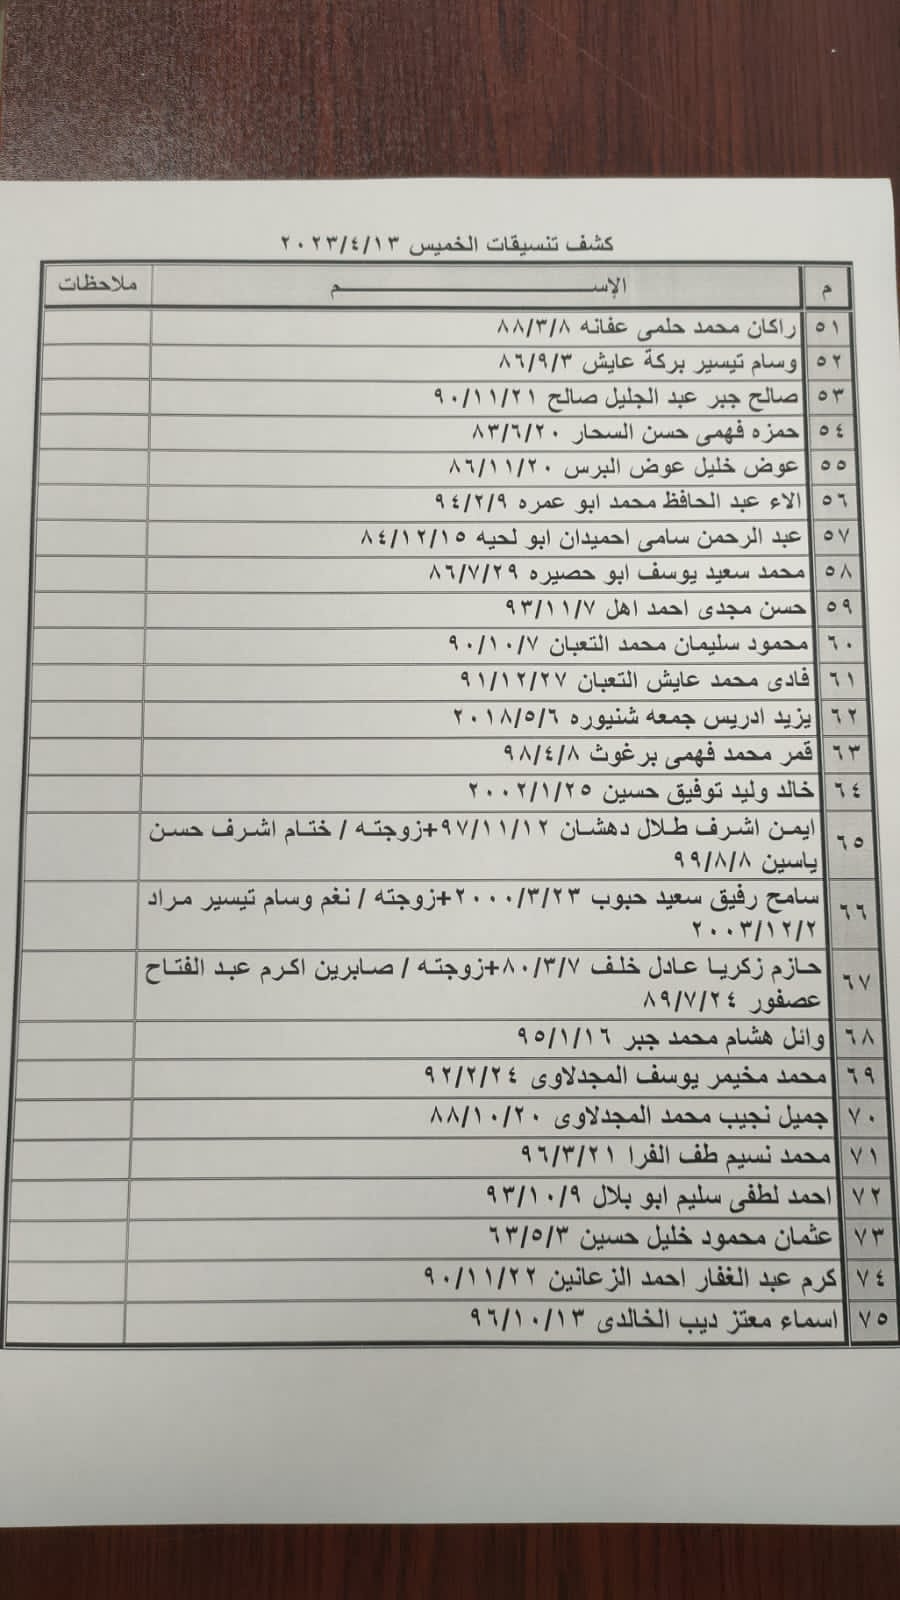 كشف تنسيقات الخميس ٢٠٢٣/٤/١٣
م الإســـــــــــــم ملاحظات
٥١ راكان محمد حلمى عفانه ٨٨/٣/٨
٥٢ وسام تيسير بركة عايش ٨٦/٩/٣
٥٣ صالح جبر عبد الجليل صالح ٩٠/١١/٢١
٥٤ حمزه فهمى حسن السحار ٨٣/٦/٢٠
٥٥ عوض خليل عوض البرس ٨٦/١١/٢٠
٥٦ الاء عبد الحافظ محمد ابو عمره ٩٤/٢/٩
٥٧ عبد الرحمن سامى احميدان ابو لحيه ٨٤/١٢/١٥
٥٨ محمد سعيد يوسف ابو حصيره ٨٦/٧/٢٩
٥٩ حسن مجدى احمد اهل ٩٣/١١/٧
٦٠ محمود سليمان محمد التعبان ٩٠/١٠/٧
٦١ فادى محمد عايش التعبان ٩١/١٢/٢٧
٦٢ يزيد ادريس جمعه شنيوره ٢٠١٨/٥/٦
٦٣ قمر محمد فهمى برغوث ٩٨/٤/٨
٦٤ خالد وليد توفيق حسين ٢٠٠٢/١/٢٥
٦٥ ايمن اشرف طلال دهشان ٩٧/١١/١٢+زوجته / ختام اشرف حسن
ياسين ٩٩/٨/٨
٦٦ سامح رفيق سعيد حبوب ٢٠٠٠/٣/٢٣+زوجته / نغم وسام تيسير مراد
٢٠٠٣/١٢/٢
٦٧ حازم زكريا عادل خلف ٨٠/٣/٧+زوجته / صابرين اكرم عبد الفتاح
عصفور ٨٩/٧/٢٤
٦٨ وائل هشام محمد جبر ٩٥/١/١٦
٦٩ محمد مخيمر يوسف المجدلاوى ٩٢/٢/٢٤
٧٠ جميل نجيب محمد المجدلاوى ٨٨/١٠/٢٠
٧١ محمد نسيم طف الفرا ٩٦/٣/٢١
٧٢ احمد لطفى سليم ابو بلال ٩٣/١٠/٩
٧٣ عثمان محمود خليل حسين ٦٣/٥/٣
٧٤ كرم عبد الغفار احمد الزعانين ٩٠/١١/٢٢
٧٥ اسماء معتز ديب الخالدى ٩٦/١٠/١٣